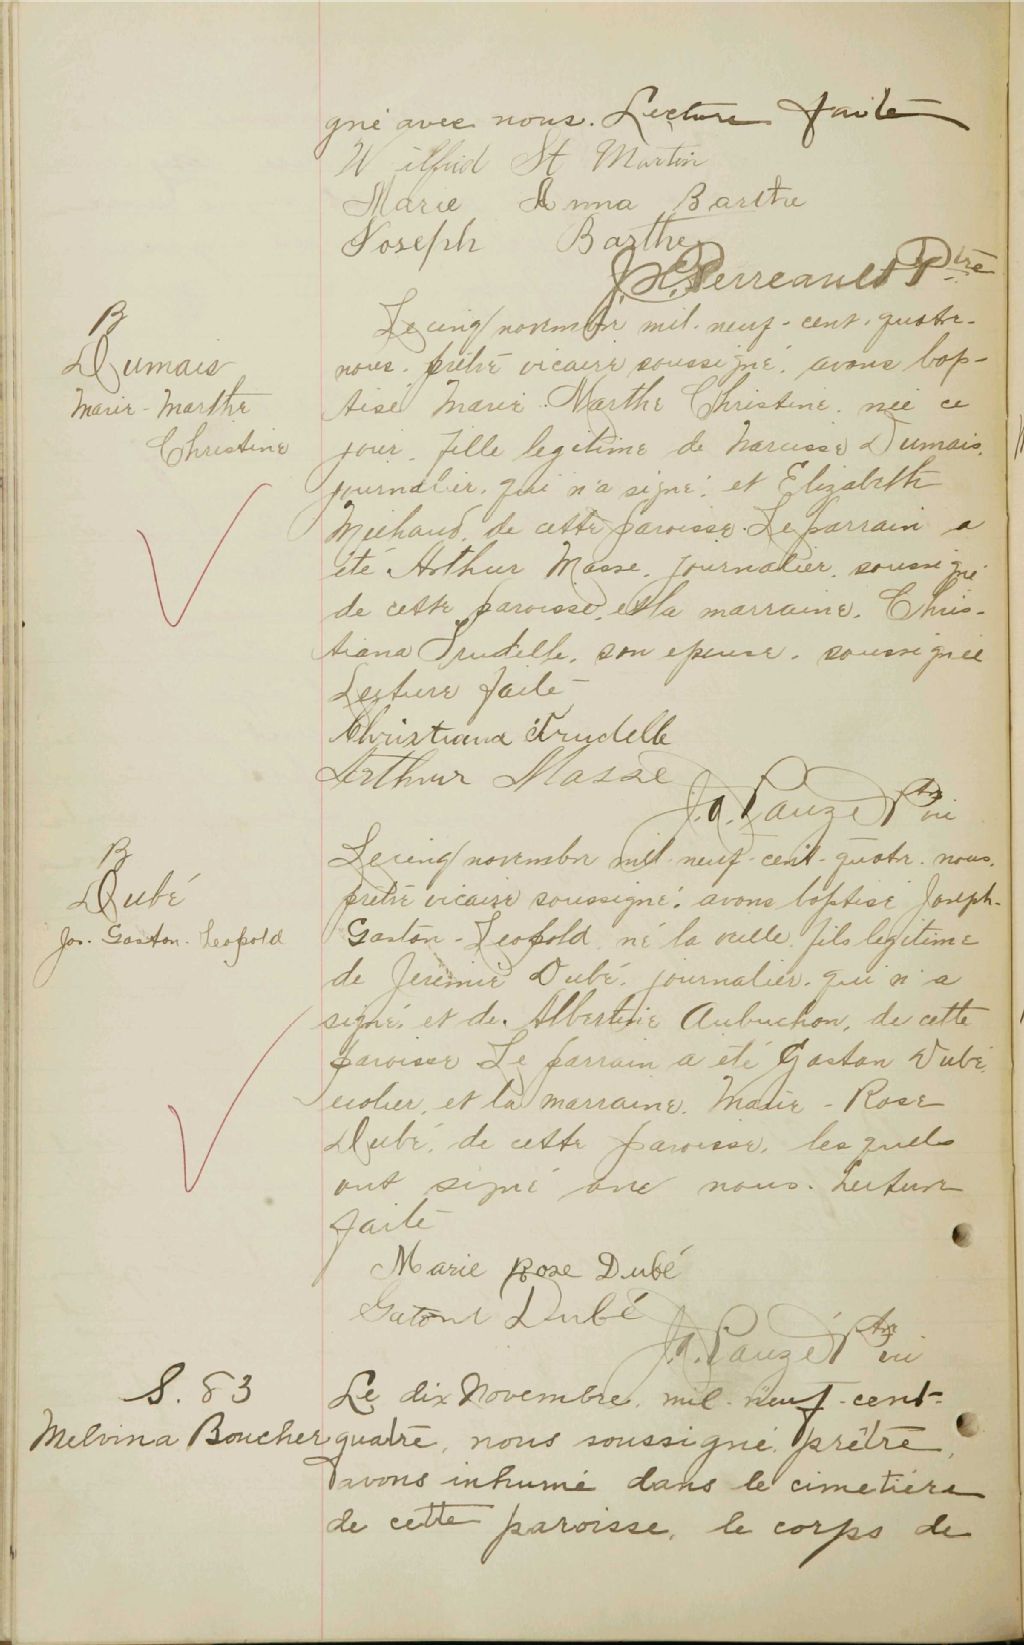 gné avec nous. Lecture faite
Wilfrid St Martin
Marie Anna Barthe
Joseph Barthe
Perreault Ptre
B
Dumais
Marie-Marthe
Christine
Le cinq novembre mil-neuf-cent-quatre-
nous, prêtre vicaire soussigné, avons bap-
tisé Marie Marthe Christine, née ce
jour, fille legitime de Narcisse Dumais,
journalier, qui n'a signé, et Elizabeth
Michaud, de cette paroisse. Le parrain a
été Arthur Masse, journalier, soussigné
de cette paroisse, et la marraine, Chris-
tiana Trudelle, son epouse, soussignée
Lecture faite
Christiana Trudelle
Arthur Masse
J.A. Pauzé Ptre vic
B
Dubé
Jos. Gaston-Leopold
Le cinq novembre mil-neuf-cent-quatre, nous,
prêtre vicaire soussigné, avons baptisé Joseph-
Gaston-Leopold, né la veille, fils legitime
de Jeremie Dubé, journalier, qui n'a
signé, et de Albertine Aubuchon, de cette
paroisse Le parrain a été Gaston Dubé,
ecolier, et la marraine, Marie-Rose
Dubé, de cette paroisse, lesquels
ont signé avec nous. Lecture
faite
Marie Rose Dubé
Gatons Dubé
J.A. Pauzé Ptre vic
S. 83
Melvina Boucher
Le dix Novembre, mil-neuf-cent-
quatre, nous soussigné, prêtre,
avons inhumé dans le cimetière
de cette paroisse, le corps de